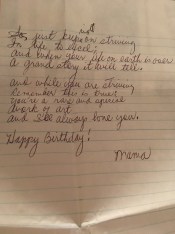 So just keep on striving
In life to excel;
And when your life on earth is over
A grand story it will tell.
And while you are striving
Remember this is trust
You're a rare and special
Work of art
And I'll always love you.
Happy Birthday!
Mama